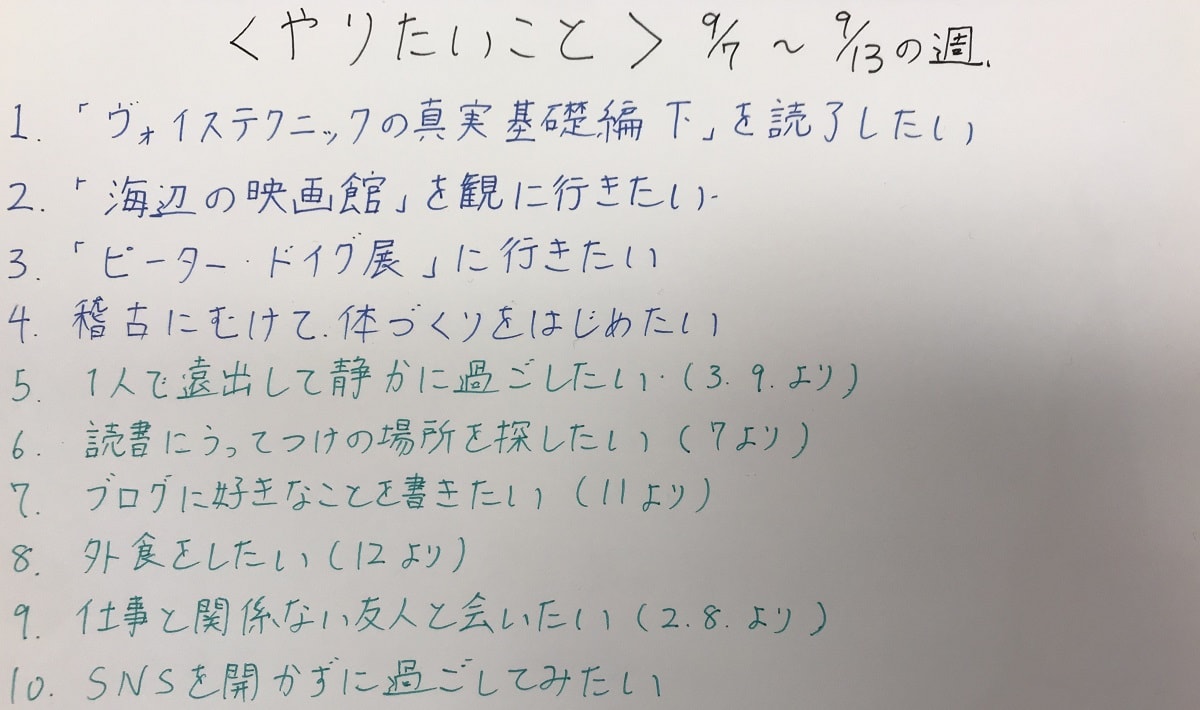 ＜やりたいこと＞ 9/7 〜 9/13の週.
1. 「ヴォイステクニックの真実 基礎編 下」を読了したい
2. 「海辺の映画館」を観に行きたい.
3. 「ピーター・ドイグ展」に行きたい
4. 稽古にむけて.体づくりをはじめたい
5. 1人で遠出して静かに過ごしたい.(3. 9. より)
6. 読書にうってつけの場所を探したい(7より)
7. ブログに好きなことを書きたい(11より)
8. 外食をしたい(12より)
9. 仕事と関係ない友人と会いたい(2.8.より)
10. SNSを開かずに過ごしてみたい